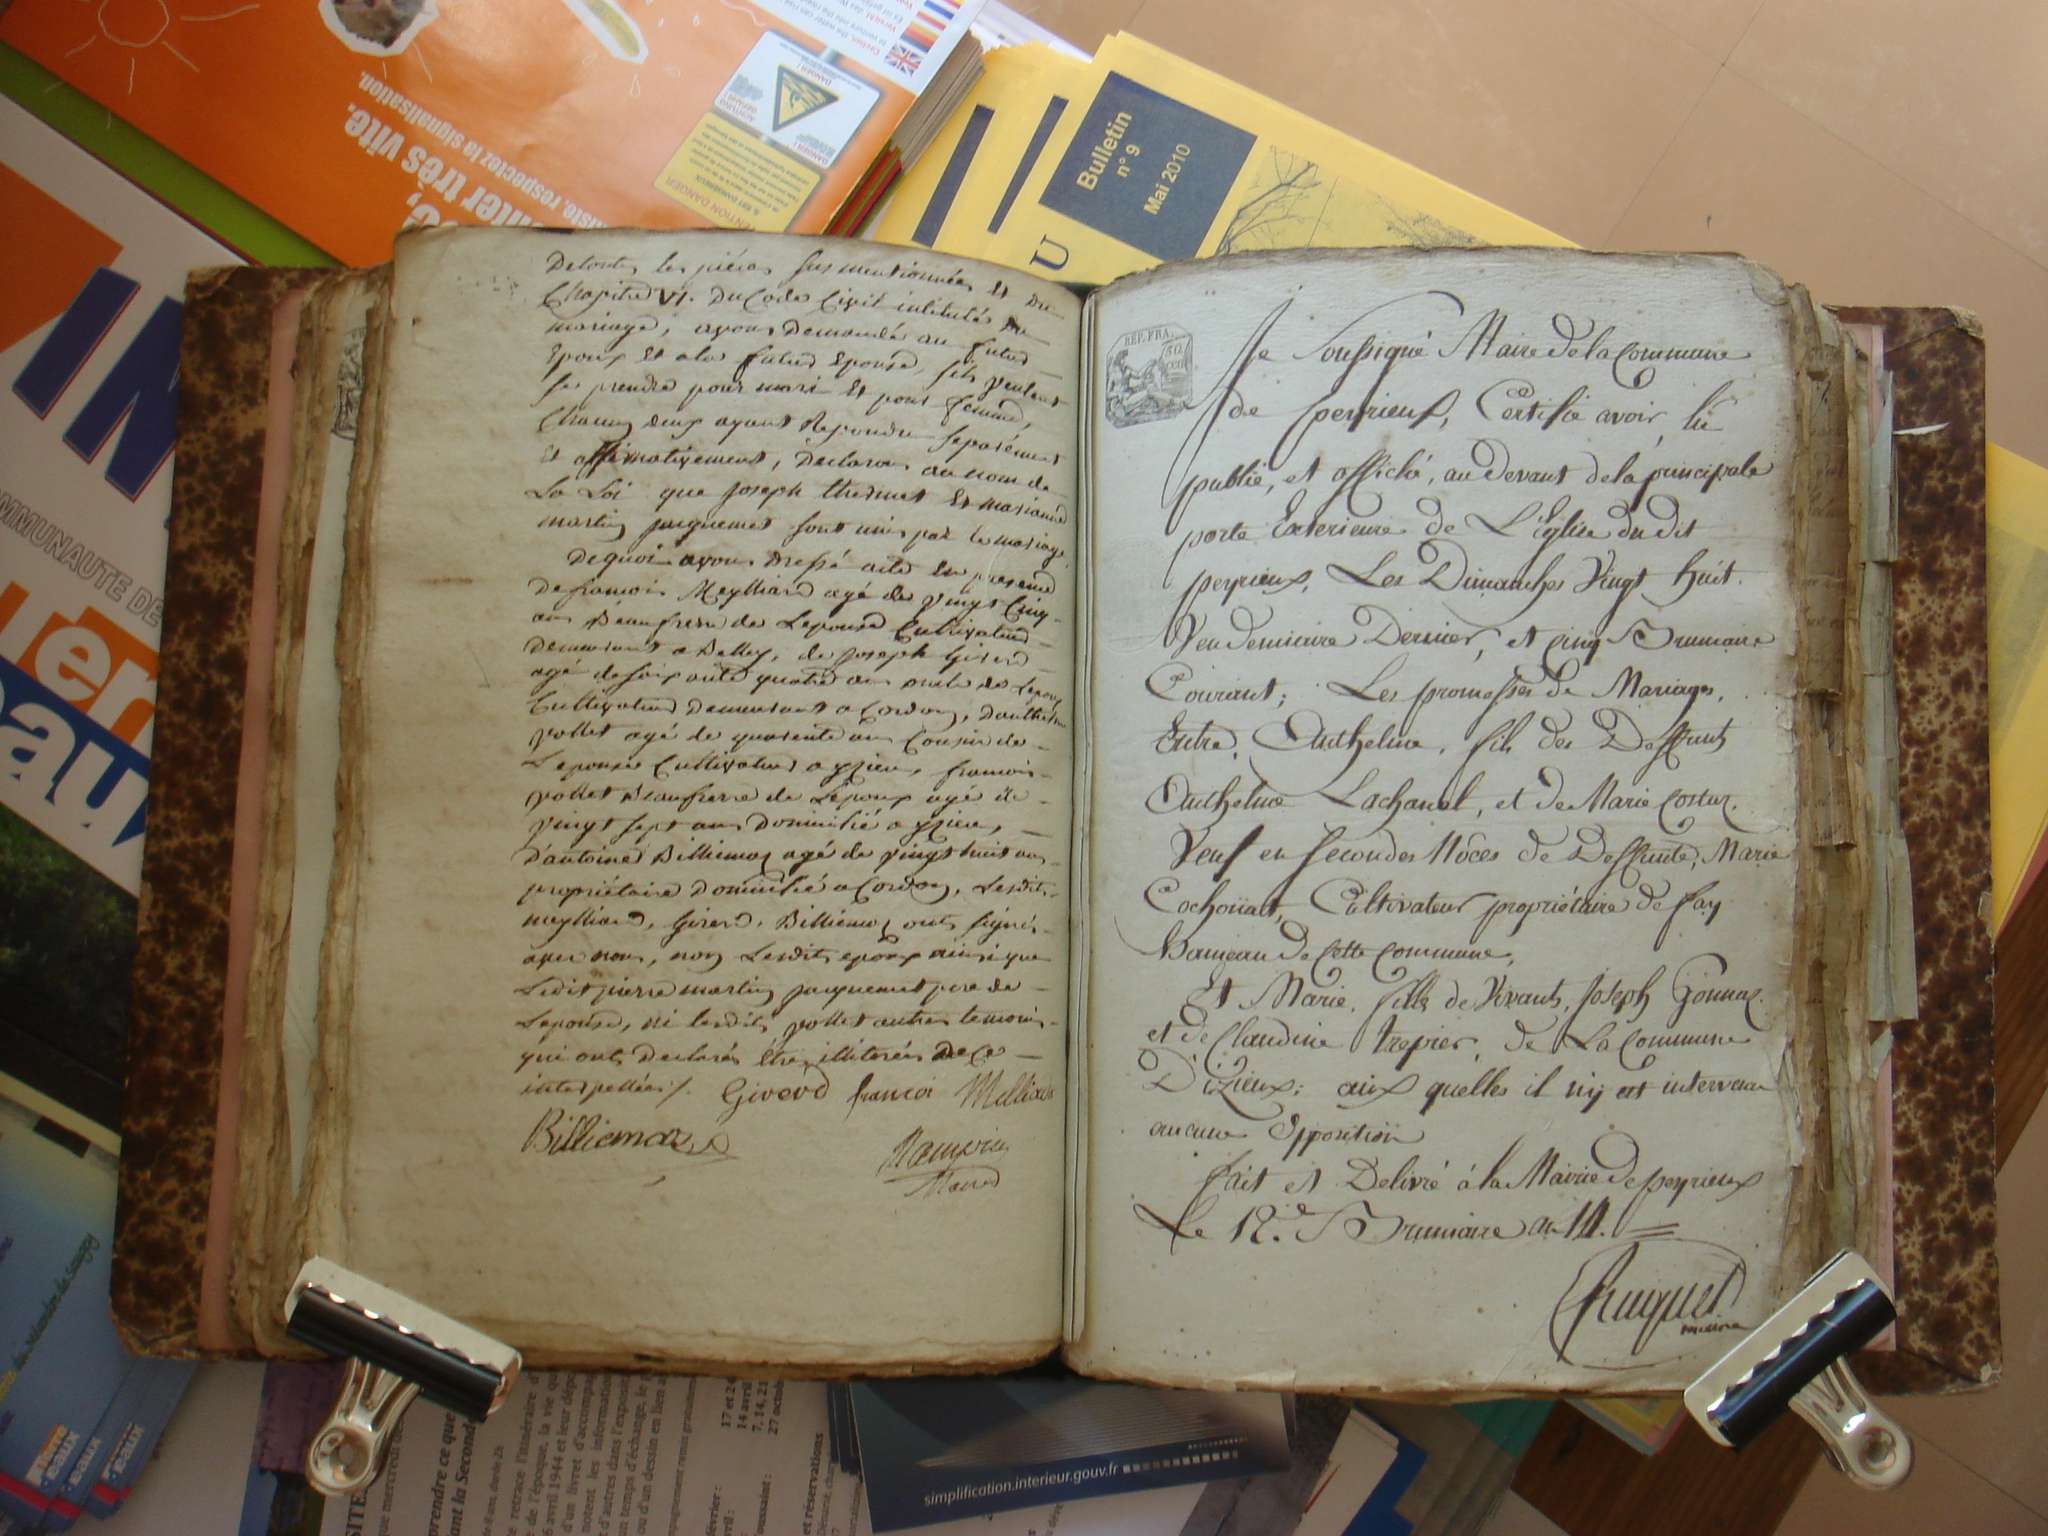 De toutes les pièces sus mentionnées Et du
Chapitre VI. Du Code Civil intitulé Du
mariage, avons Demandé au futur
Epoux Et a la future Epouse, sils veulent
se prendre pour mari Et pour femme,
Chacun deux ayant Repondu separément
Et affirmativement, Declarons au nom de
La Loi que joseph thedmet Et marianne
martin jacquemet sont unis par le mariage
De quoi avons dressé acte En presence
De francois Meylliard agé de vingt Cinq
ans Beaufrere de Lepouse Cultivateur
demeurant a Belley, de joseph Girerd
agé de soixante quatre ans oncle de Lepoux
Cultivateur Demeurant a Cordon, dantheline
pollet agé de quarente ans Cousin de
Lepouse Cultivateur a yzieu, francois
pollet Beaufrere de Lepoux agé de
vingt sept ans Domicilié a yzieu,
d'antoine Billiemaz agé de vingt huit ans
propriétaire Domicilié a Cordon, Lesdits
meylliard, Girerd, Billiemaz ont signés
avec nous, non Lesdits epoux ainsi que
Ledit pierre martin jacquemet pere de
Lepouse, ni lesdits pollet autres temoins
qui ont Declarés être illiterés De Ce
interpellés /. Girerd francoi Melliard
Billiemaz
Maire
REP. FRA.
50
Je Soussigné Maire de la Commune
de peyrieux, Certifie avoir, lû
publié, et affiché, au devant de la principale
porte Exterieure de L'Eglise du dit
peyrieux, Les Dimanches Vingt huit
Vendemiaire Dernier, et cinq Brumaire
Courant; Les promesses de Mariages,
Entre, Anthelme, fils des Deffunts
Anthelme Lachanel, et de Marie Costaz
Veuf en secondes Nôces de Deffunte, Marie
Cochonat, Cultivateur propriétaire de fay
hameau de Cette Commune,
Et Marie, fille de Vivants, Joseph Gonnaz
et de Claudine trepier, de La Commune
D'izieux; aux quelles il n'y est intervenu
aucune Opposition
fait et Delivré à la Mairie de peyrieux
Le 12.e Brumaire an 14.
Huguet
maire
Bulletin
n° 9
Mai 2010
U
ter très vite.
respectez la signalisation.
DANGER
MMUNAUTE DE
er
eau
simplification.interieur.gouv.fr
17 et 24
14 avril
7, 14, 21
27 octob
et réservations